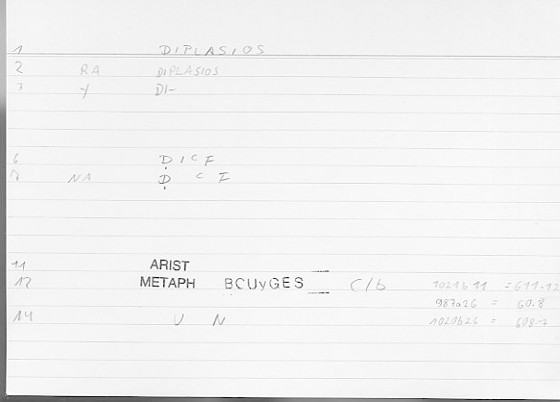 1 DIPLASIOS
2 RA DIPLASIOS
3 Y DI-
6 D I C F
7 NA D C F
11 ARIST
12 METAPH BCUyGES C/b 1021b11 = 611-12
987a26 = 60.8
1020b26 = 608-
14 U N